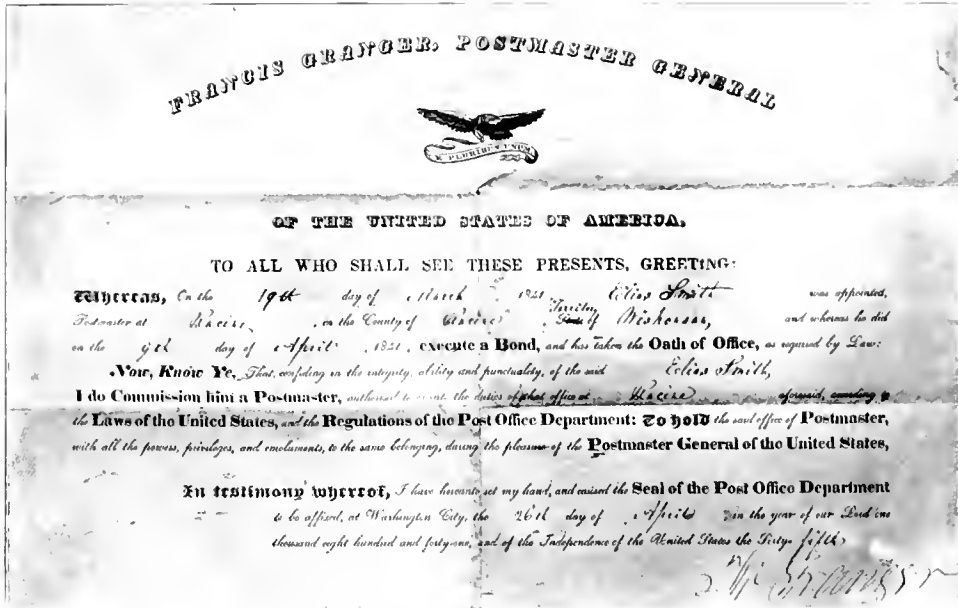 FRANCIS GRANGER, POSTMASTER GENERAL
E PLURIBUS UNUM
OF THE UNITED STATES OF AMERICA.
TO ALL WHO SHALL SEE THESE PRESENTS, GREETING:
Whereas, On the 19th day of March 1841 Elias Smith was appointed,
Territory
Postmaster at Racine, in the County of Racine of Wiskonsan, and whereas he did
on the 9th day of April 1841, execute a Bond, and has taken the Oath of Office, as required by Law:
Now, Know Ye, That, confiding in the integrity, ability and punctuality, of the said Elias Smith,
I do Commission him a Postmaster, authorised to execute the duties of that office at Racine aforesaid, according to
the Laws of the United States, and the Regulations of the Post Office Department: To hold the said office of Postmaster,
with all the powers, privileges, and emoluments, to the same belonging, during the pleasure of the Postmaster General of the United States,
In testimony whereof, I have hereunto set my hand, and caused the Seal of the Post Office Department
to be affixed, at Washington City, the 26th day of April in the year of our Lord one
thousand eight hundred and forty-one, and of the Independence of the United States the Sixty-fifth
Granger